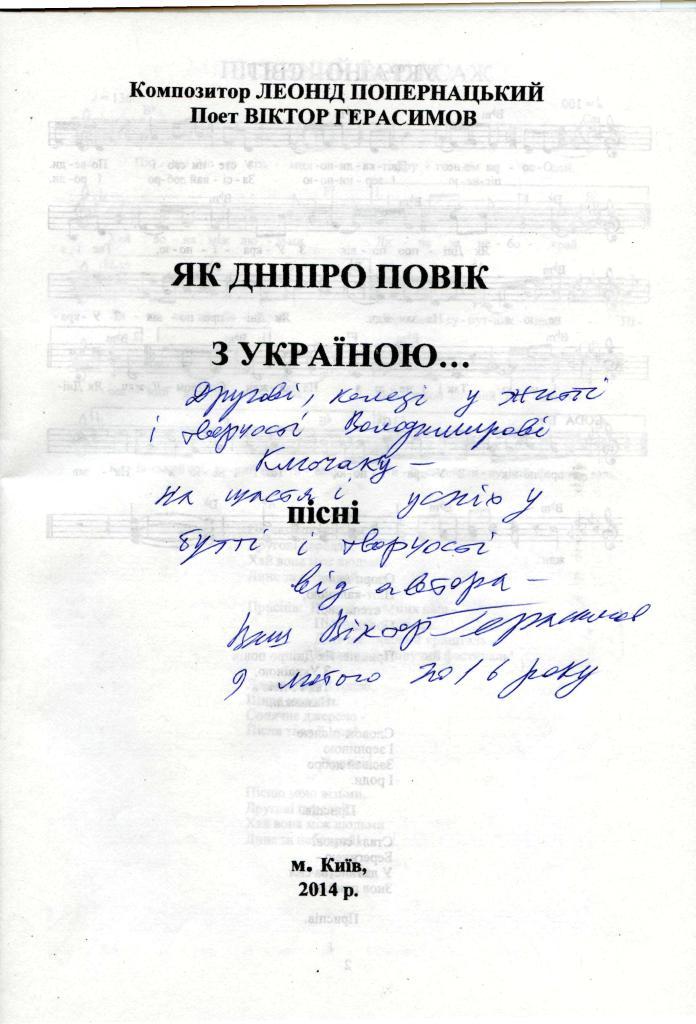 Композитор ЛЕОНІД ПОПЕРНАЦЬКИЙ
Поет ВІКТОР ГЕРАСИМОВ
ЯК ДНІПРО ПОВІК
З УКРАЇНОЮ...
Другові, колезі у житті
і творчості Володимирові
Ключаку –
на щастя і успіх у
пісні
бутті і творчості
від автора –
Ваш Віктор Герасимов
9 лютого 2016 року
м. Київ,
2014 р.